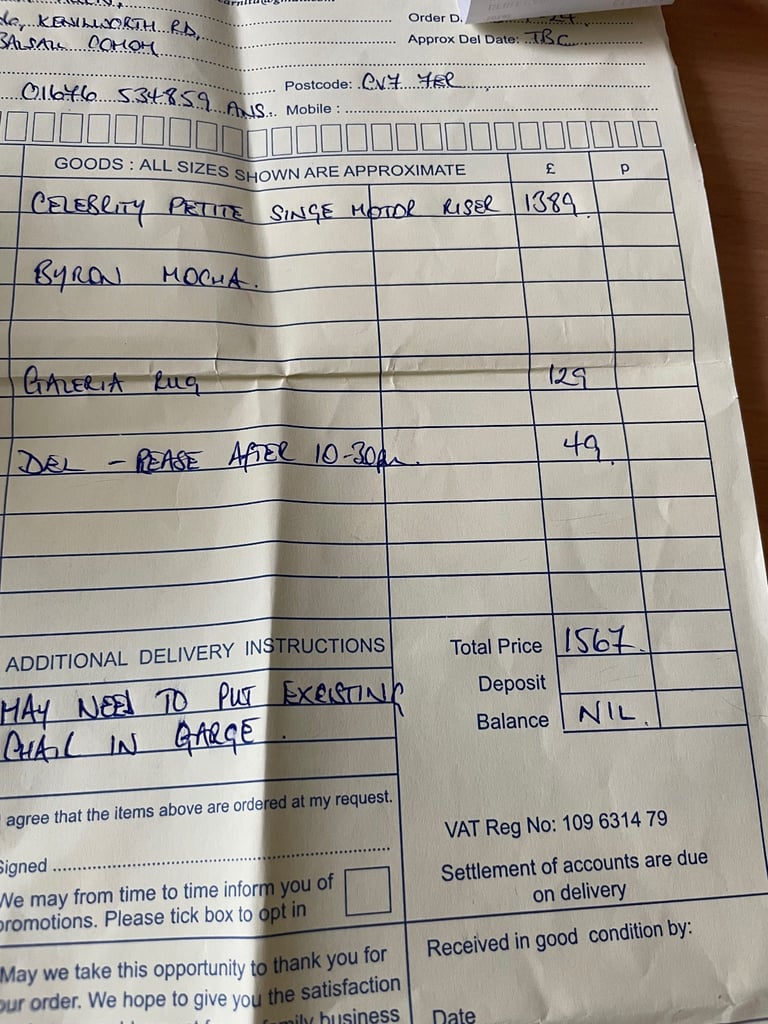 Order D.
KENILWORTH RD,
Approx Del Date: TBC
BALSALL COMMON
Postcode: CV7 7ER
01676 534859 ANS. Mobile :
GOODS : ALL SIZES SHOWN ARE APPROXIMATE £ P
CELEBRITY PETITE SINGE MOTOR RISER 1389.
BYRON MOCHA.
GALERIA RUG 129
DEL - PEASE AFTER 10-30am. 49.
ADDITIONAL DELIVERY INSTRUCTIONS
MAY NEED TO PUT EXEISTING
CHAIL IN GARGE.
Total Price 1567.
Deposit
Balance NIL.
I agree that the items above are ordered at my request.
VAT Reg No: 109 6314 79
Signed
Settlement of accounts are due
on delivery
We may from time to time inform you of
promotions. Please tick box to opt in
May we take this opportunity to thank you for
our order. We hope to give you the satisfaction
family business
Received in good condition by:
Date